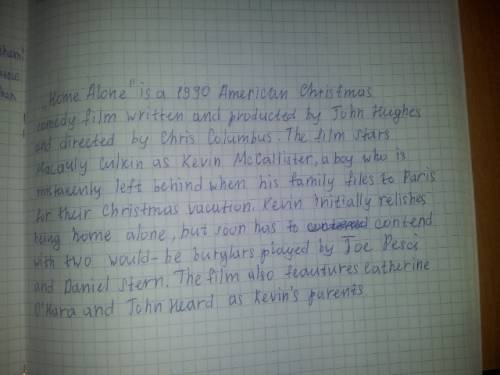 „Home Alone" is a 1990 American Christmas
comedy film written and producted by John Hughes
and directed by Chris Columbus. The film stars
Macauly Culkin as Kevin McCallister, a boy who is
mistakenly left behind when his family flies to Paris
for their Christmas vacation. Kevin initially relishes
being home alone, but soon has to contend
with two would-be burglars played by Joe Pesci
and Daniel Stern. The film also feautures Catherine
O'Hara and John Heard as Kevin's parents.